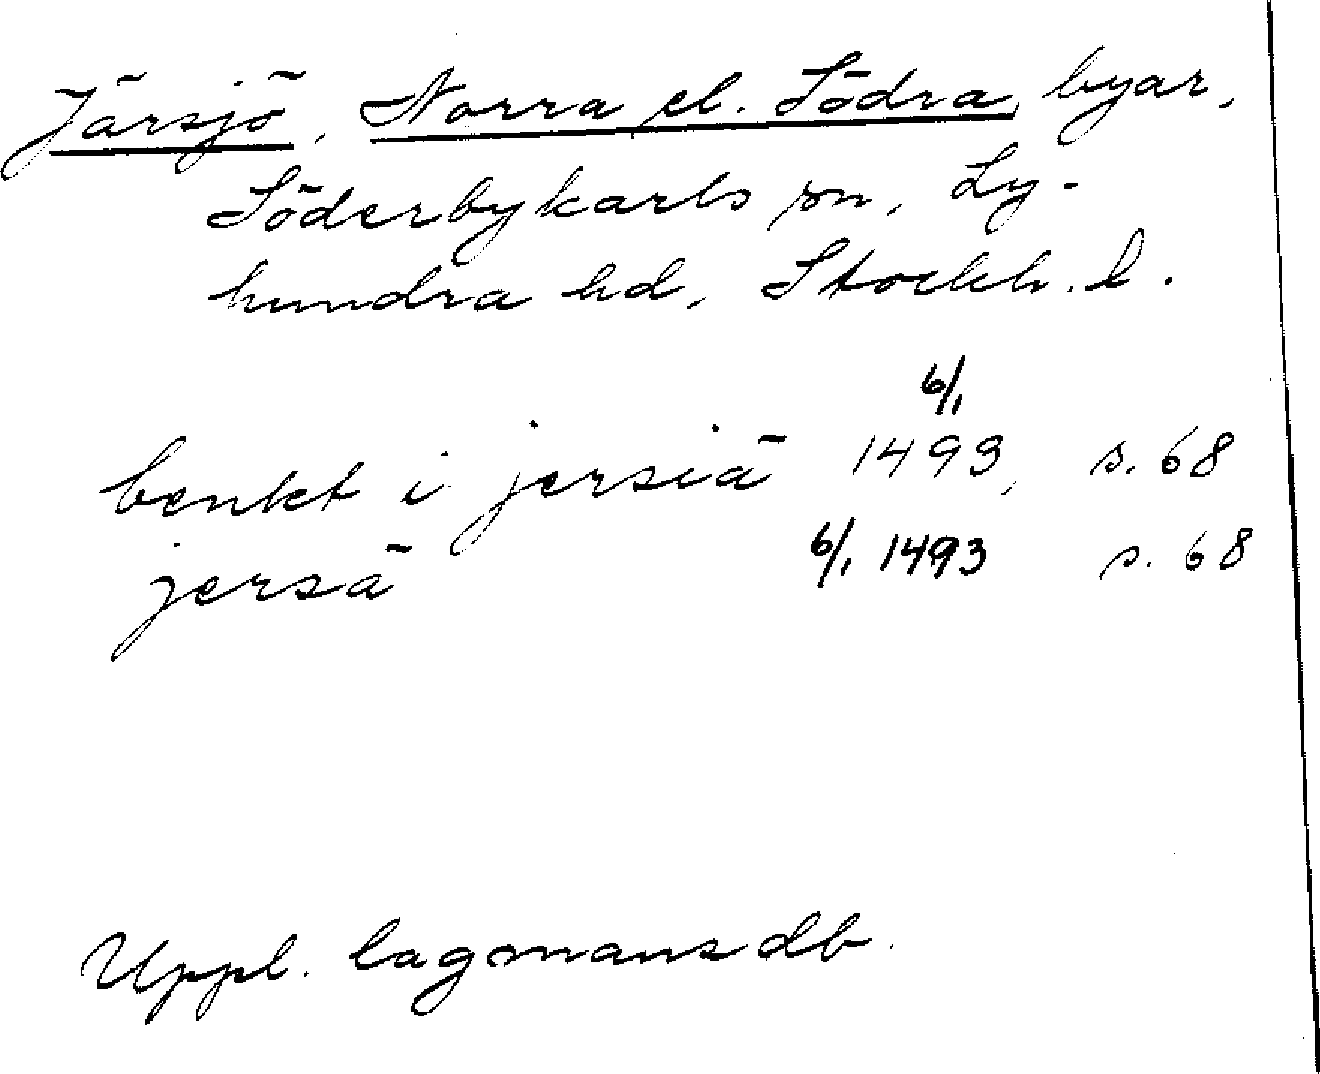 Järsjö, Norra el. Södra, byar,
Söderbykarls sn, Ly-
hundra hd, Stockh. l.
6/1
benkt i jersiä 1493, s. 68
jersä 6/1 1493 s. 68
Uppl. lagmansdb.